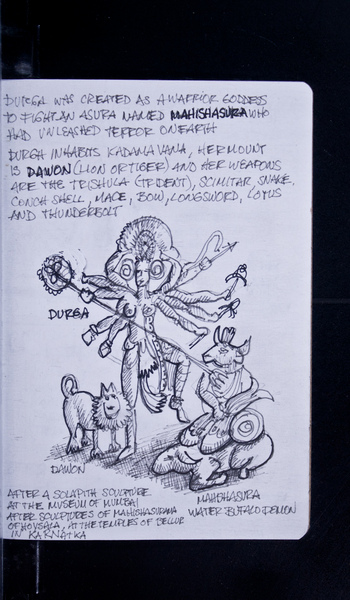 DURGA WAS CREATED AS A WARRIOR GODDESS
TO FIGHT AN ASURA NAMED MAHISHASURA WHO
HAD UNLEASHED TERROR ON EARTH
DURGA INHABITS KADAMAVANA, HER MOUNT
IS DAWON (LION OR TIGER) AND HER WEAPONS
ARE THE TRISHULA (TRIDENT), SCIMITAR, SNAKE,
CONCH SHELL, MACE, BOW, LONGSWORD, LOTUS
AND THUNDERBOLT
DURGA
DAWON
MAHISHASURA
WATER BUFFALO DEMON
AFTER A SOLAPITH SCULPTURE
AT THE MUSEUM OF MUMBAI
AFTER SCULPTURES OF MAHISHASURAMA
OF HOYSALA, AT THE TEMPLES OF BELUR
IN KARNATKA